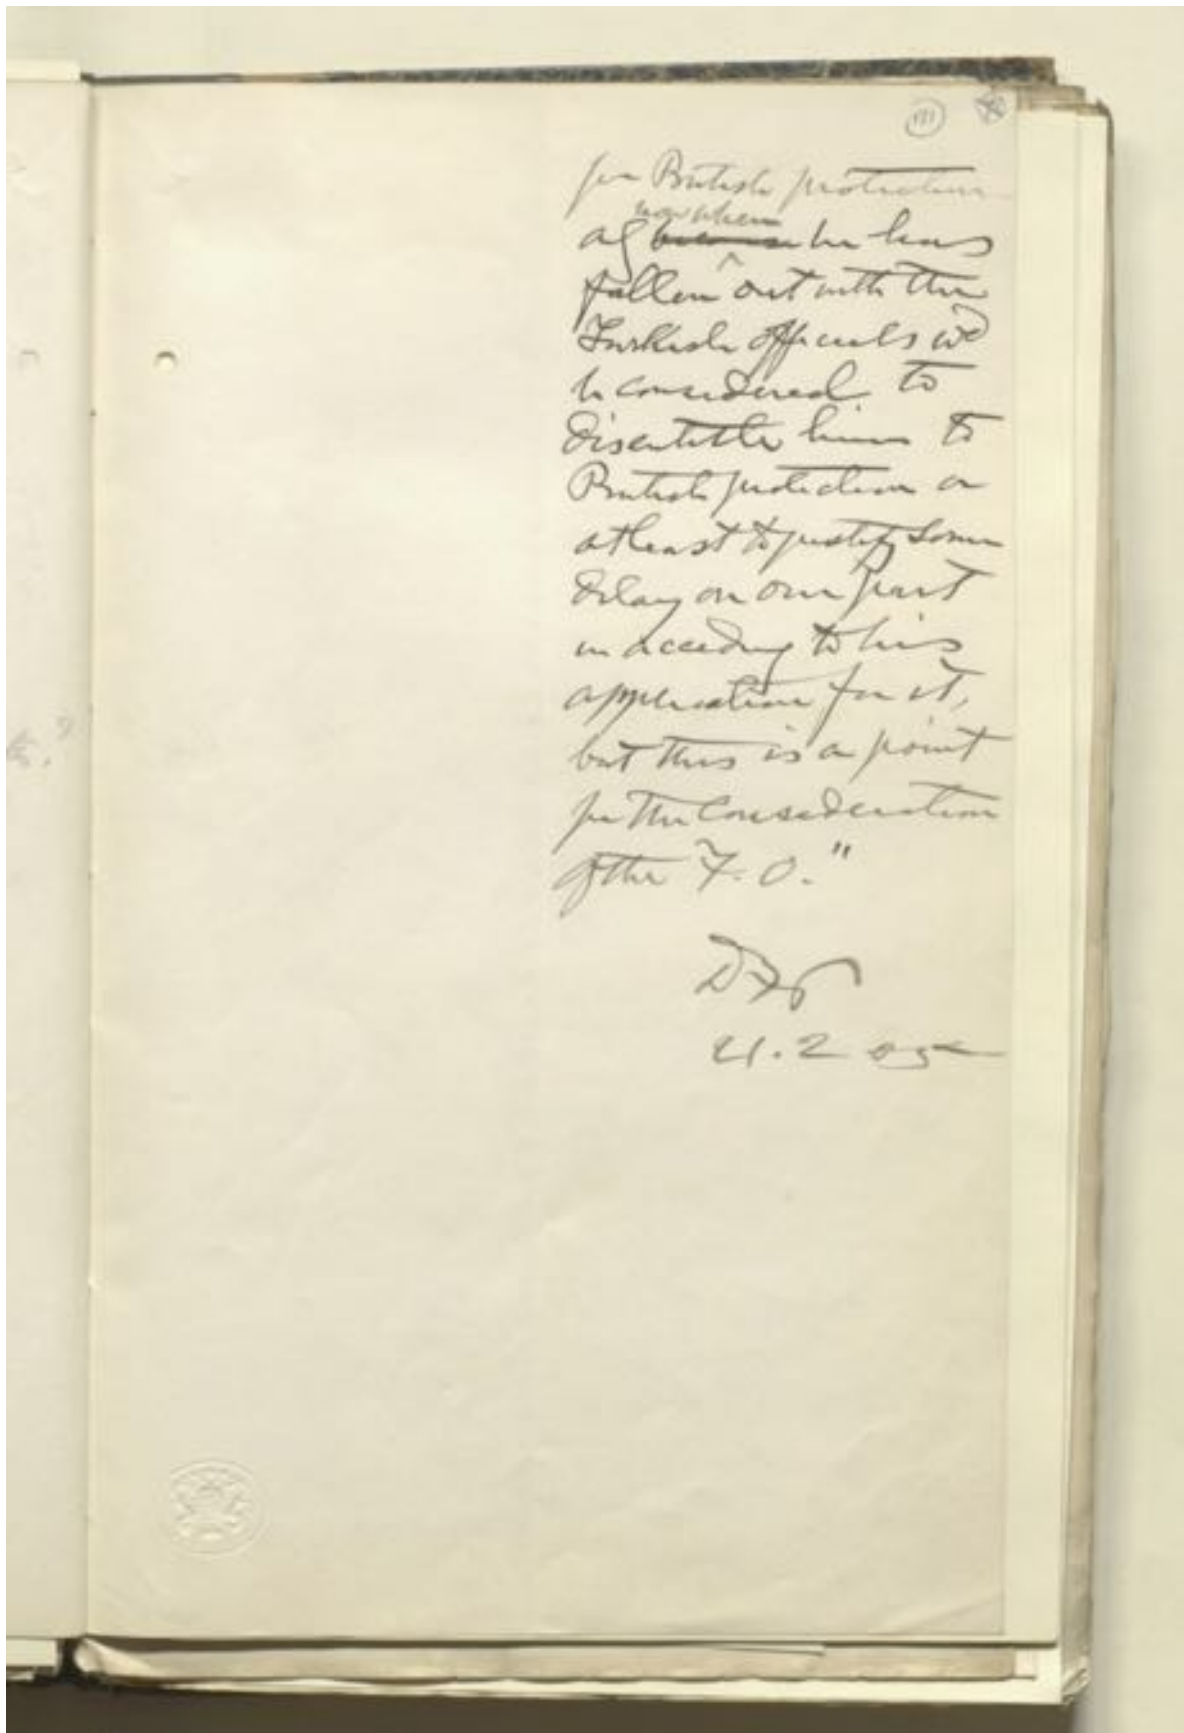 181
for British protection
now when
as because he has
fallen out with the
Turkish officials wd
be considered to
disentitle him to
British protection or
at least to justify some
delay on our part
in acceding to his
application for it,
but this is a point
for the consideration
of the F. O."
21.2 05